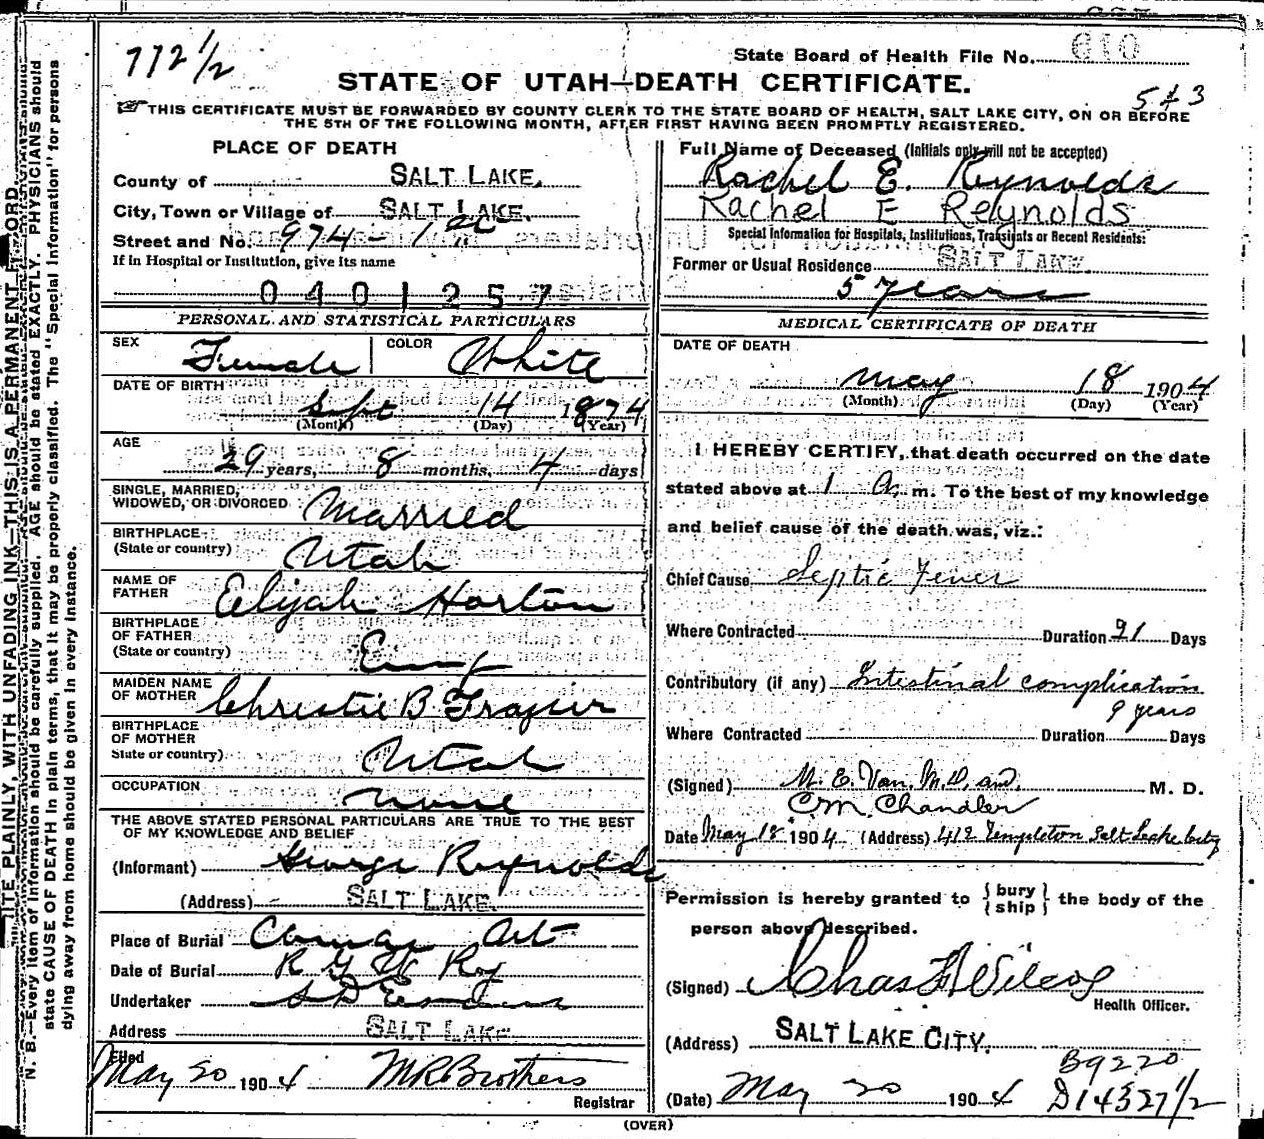 772 1/2
State Board of Health File No. 610
STATE OF UTAH—DEATH CERTIFICATE.
543
THIS CERTIFICATE MUST BE FORWARDED BY COUNTY CLERK TO THE STATE BOARD OF HEALTH, SALT LAKE CITY, ON OR BEFORE
THE 5TH OF THE FOLLOWING MONTH, AFTER FIRST HAVING BEEN PROMPTLY REGISTERED.
PLACE OF DEATH
County of SALT LAKE.
City, Town or Village of SALT LAKE.
Street and No. 974 - 1st
If in Hospital or Institution, give its name
0401257
PERSONAL AND STATISTICAL PARTICULARS
SEX Female COLOR White
DATE OF BIRTH
Sept 14 1874
(Month) (Day) (Year)
AGE
29 years, 8 months, 4 days
SINGLE, MARRIED,
WIDOWED, OR DIVORCED Married
BIRTHPLACE
(State or country) Utah
NAME OF
FATHER Elijah Horton
BIRTHPLACE
OF FATHER
(State or country) Eng
MAIDEN NAME
OF MOTHER Christie B Frazier
BIRTHPLACE
OF MOTHER
State or country) Utah
OCCUPATION None
THE ABOVE STATED PERSONAL PARTICULARS ARE TRUE TO THE BEST
OF MY KNOWLEDGE AND BELIEF
(Informant) George Reynolds
(Address) SALT LAKE.
Place of Burial
Date of Burial R G W Ry
Undertaker
Address SALT LAKE
Filed
May 20 1904 M R Brothers
Registrar
Full Name of Deceased (Initials only will not be accepted)
Rachel E. Reynolds
Rachel E Reynolds
Special Information for Hospitals, Institutions, Transients or Recent Residents:
Former or Usual Residence SALT LAKE.
5 years
MEDICAL CERTIFICATE OF DEATH
DATE OF DEATH
May 18 1904
(Month) (Day) (Year)
I HEREBY CERTIFY, that death occurred on the date
stated above at 1 A. m. To the best of my knowledge
and belief cause of the death was, viz.:
Chief Cause Septic Fever
Where Contracted Duration 21 Days
Contributory (if any) Intestinal complication
9 years
Where Contracted Duration Days
(Signed) M. E. Van, M.D. and M. D.
C.M. Chandler
Date May 18 1904 (Address) 412 Templeton Salt Lake City
Permission is hereby granted to {bury
ship} the body of the
person above described.
(Signed) Chas F Wilcox
Health Officer.
(Address) SALT LAKE CITY.
B9220
(Date) May 20 1904 D14527 1/2
(OVER)
WRITE PLAINLY, WITH UNFADING INK—THIS IS A PERMANENT RECORD.
N. B.—Every item of information should be carefully supplied. AGE should be stated EXACTLY. PHYSICIANS should
state CAUSE OF DEATH in plain terms, that it may be properly classified. The "Special Information" for persons
dying away from home should be given in every instance.